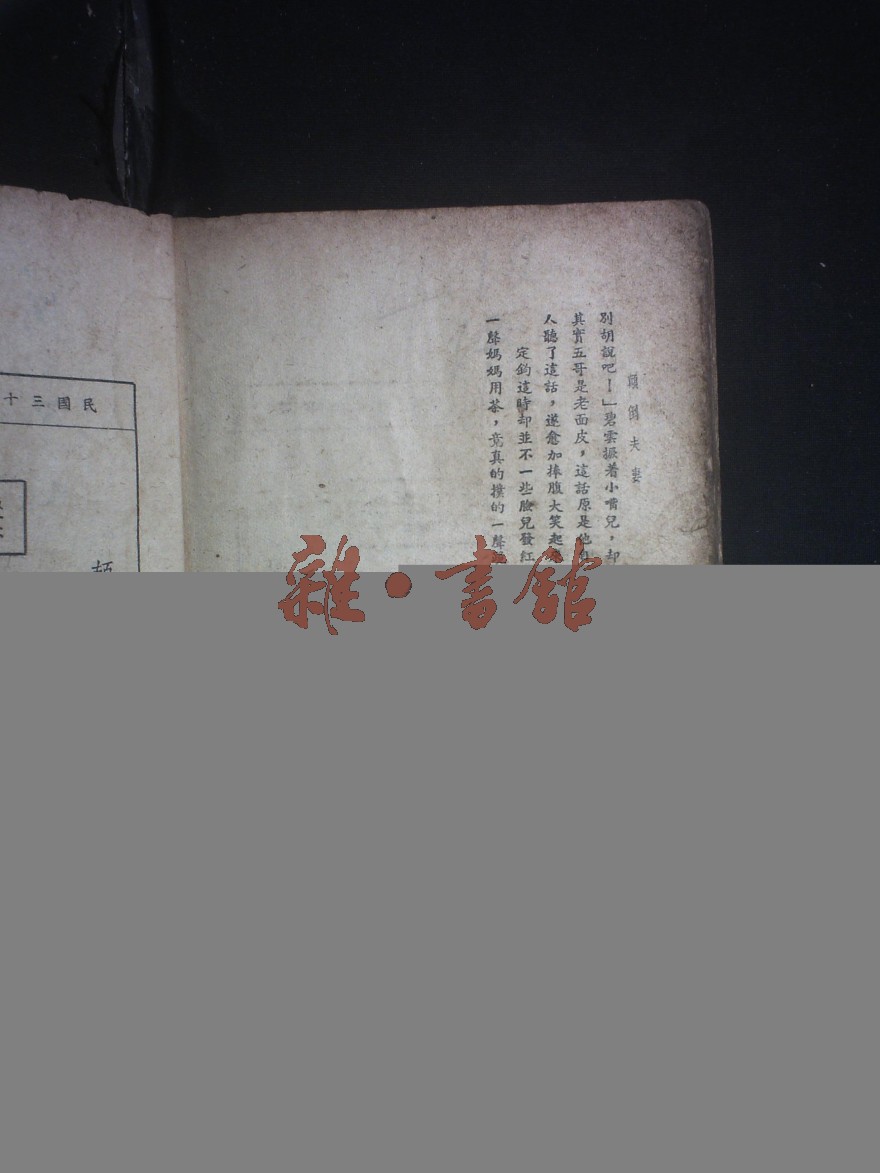 顛倒夫妻
別胡說吧！」碧雲撅着小嘴兒，却
其實五哥是老面皮，這話原是他
人聽了這話，遂愈加捧腹大笑起
定鈞這時却並不一些臉兒發紅
一聲媽媽用茶，竟真的撲的一聲
民國三十
雜·書館